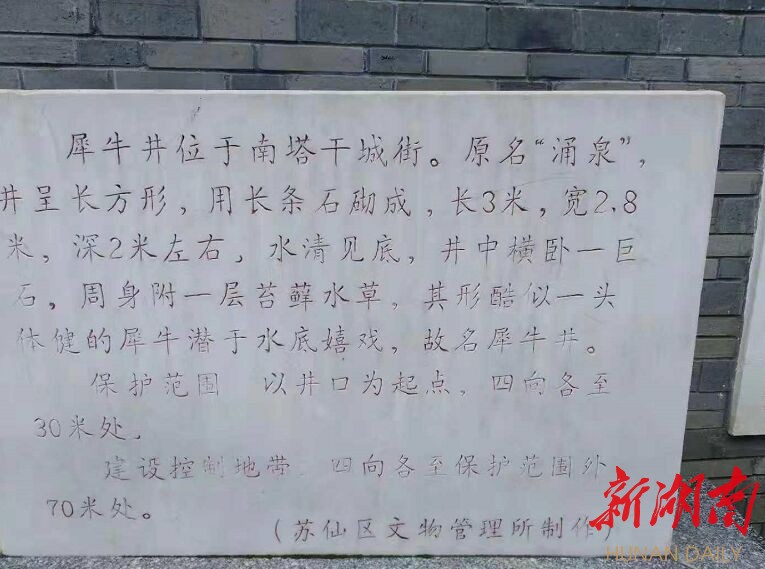 犀牛井位于南塔干城街。原名“涌泉”，
井呈长方形，用长条石砌成，长3米，宽2.8
米，深2米左右，水清见底，井中横卧一巨
石，周身附一层苔藓水草，其形酷似一头
体健的犀牛潜于水底嬉戏，故名犀牛井。
保护范围 以井口为起点，四向各至
30米处。
建设控制地带 四向各至保护范围外
70米处。
（苏仙区文物管理所制作）
新湖南
HUNAN DAILY